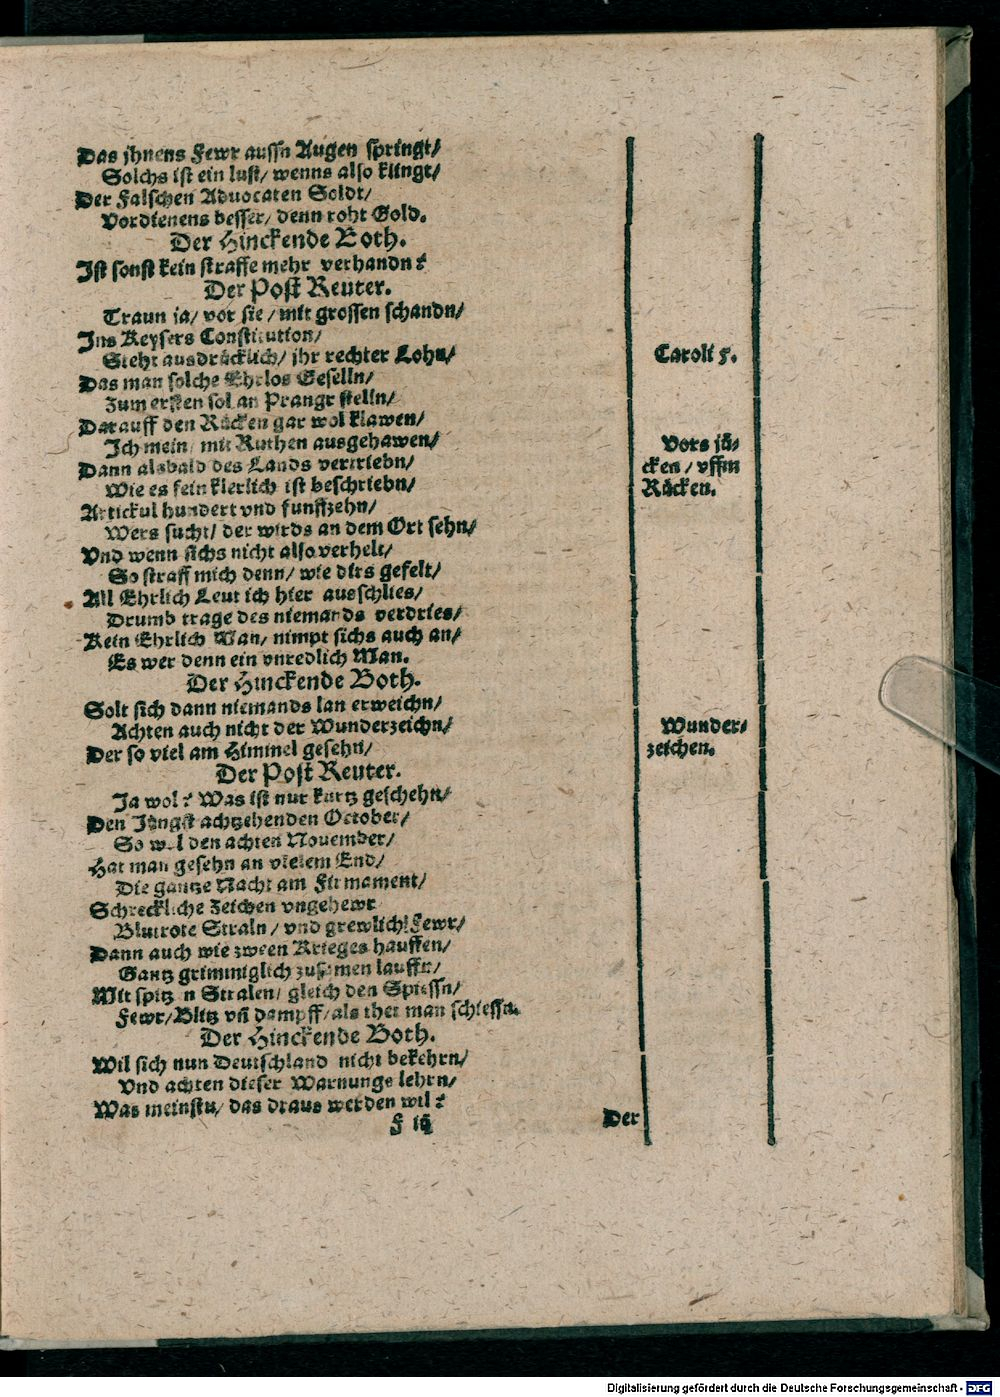 Das jhnens Fewr aussn Augen springt/
Solchs ist ein lust/ wenns also klingt/
Der Falschen Aduocaten Soldt/
Vordienens besser/ denn roht Gold.
Der Hinckende Both.
Ist sonst kein straffe mehr verhandn?
Der Post Reuter.
Traun ja/ vor sie/ mit grossen schandn/
Ins Keysers Constitution/
Steht ausdrücklich/ ihr rechter Lohn/
Caroli 5.
Das man solche Ehrlos Geselln/
Zum ersten sol an Prangr stelln/
Darauff den Rücken gar wol klawen/
Ich mein/ mit Ruthen ausgehawen/
Vors jü-
cken/ vffm
Rücken.
Dann alsbald des Lands vertriebn/
Wie es fein klerlich ist beschriebn/
Artickul hundert vnd funffzehn/
Wers sucht/ der wirds an dem Ort sehn/
Vnd wenn sichs nicht also verhelt/
So straff mich denn/ wie dirs gefelt/
All Ehrlich Leut ich hier ausschlies/
Drumb trage des niemands verdries/
Kein Ehrlich Man/ nimpt sichs auch an/
Es wer denn ein vnredlich Man.
Der Hinckende Both.
Solt sich dann niemands lan erweichn/
Achten auch nicht der Wunderzeichn/
Wunder-
zeichen.
Der so viel am Himmel gesehn/
Der Post Reuter.
Ja wol? Was ist nur kurtz geschehn/
Den Jüngst achtzehenden October/
So wol den achten Nouember/
Hat man gesehn an vielem End/
Die gantze Nacht am Firmament/
Schreckliche Zeichen vngehewr
Blutrote Straln/ vnd grewlich Fewr/
Dann auch wie zween Krieges hauffen/
Gantz grimmiglich zusamen lauffn/
Mit spitzn Stralen/ gleich den Spiessn/
Fewr/ Blitz vñ dampff/ als thet man schiessn.
Der Hinckende Both.
Wil sich nun Deutschland nicht bekehrn/
Vnd achten dieser Warnungs lehrn/
Was meinstu/ das draus werden wil?
F iij
Der
Digitalisierung gefördert durch die Deutsche Forschungsgemeinschaft - DFG